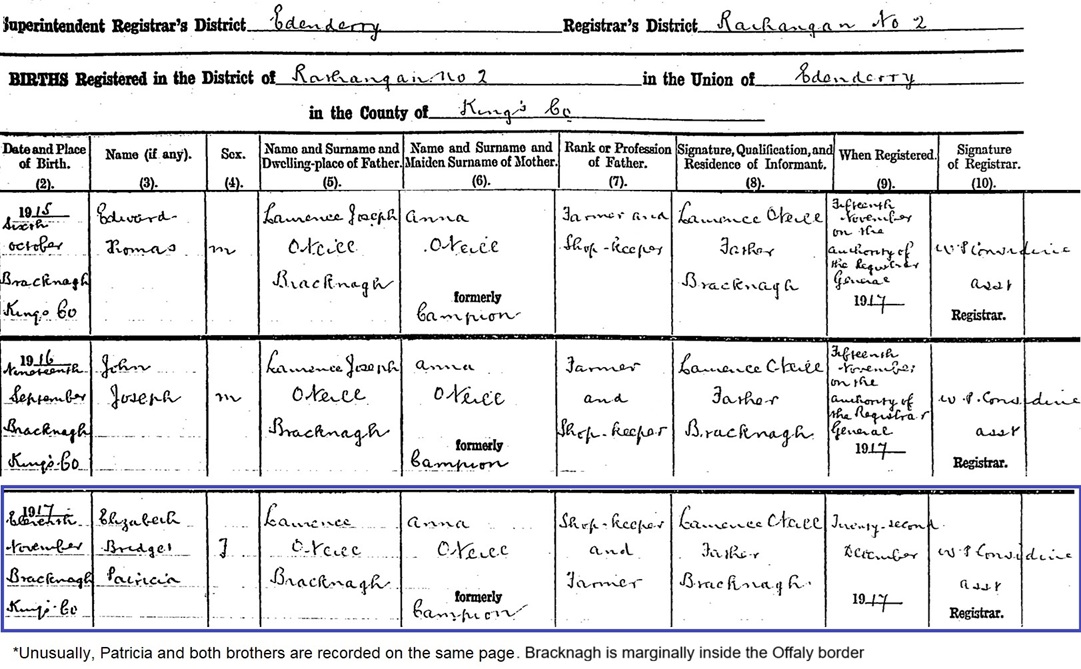 Superintendent Registrar's District Edenderry Registrar's District Rathangan No 2
BIRTHS Registered in the District of Rathangan No 2 in the Union of Edenderry
in the County of King's Co
Date and Place of Birth. (2). Name (if any). (3). Sex. (4). Name and Surname and Dwelling-place of Father. (5). Name and Surname and Maiden Surname of Mother. (6). Rank or Profession of Father. (7). Signature, Qualification, and Residence of Informant. (8). When Registered. (9). Signature of Registrar. (10).
1915 Edward Laurence Joseph Anna Farmer and Laurence O'Neill Fifteenth
Sixth November
October Thomas m O'Neill O'Neill Shop-keeper Father on the W P Considine
authority of
Bracknagh Bracknagh Bracknagh the Registrar asst
formerly General
Kings Co Campion 1917 Registrar.
1916 John Laurence Joseph Anna Farmer Laurence O'Neill Fifteenth
Nineteenth November
September Joseph m O'Neill O'Neill and Father on the W. P. Considine
authority of
Bracknagh Bracknagh Shop-keeper Bracknagh the Registrar asst
formerly General
King's Co Campion 1917 Registrar.
1917
Eleventh Elizabeth Laurence Anna Shop-keeper Laurence O'Neill Twenty-second
November Bridget F O'Neill O'Neill and Father December W P Considine
Bracknagh Patricia Bracknagh Farmer Bracknagh asst
formerly
King's Co Campion 1917 Registrar.
*Unusually, Patricia and both brothers are recorded on the same page. Bracknagh is marginally inside the Offaly border